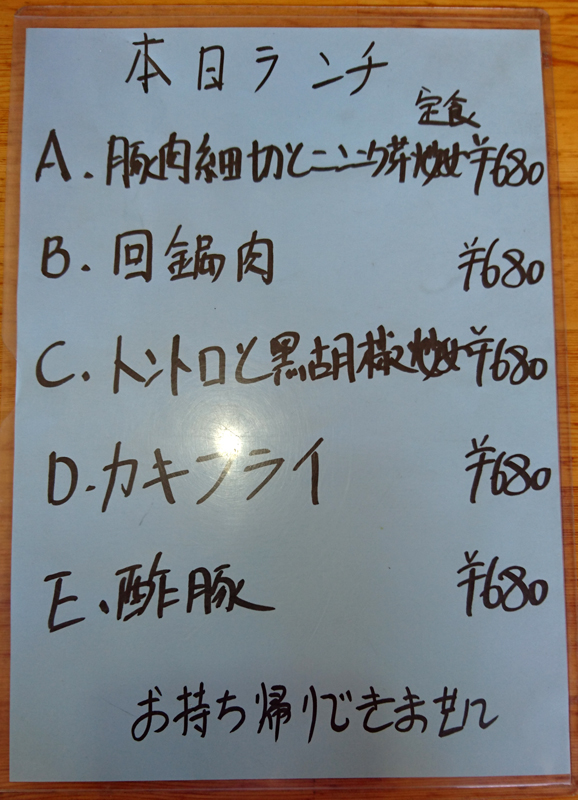 本日ランチ
定食
A. 豚肉細切とニンニク芽炒め ¥680
B. 回鍋肉 ¥680
C. トントロと黒胡椒炒め ¥680
D. カキフライ ¥680
E. 酢豚 ¥680
お持ち帰りできません